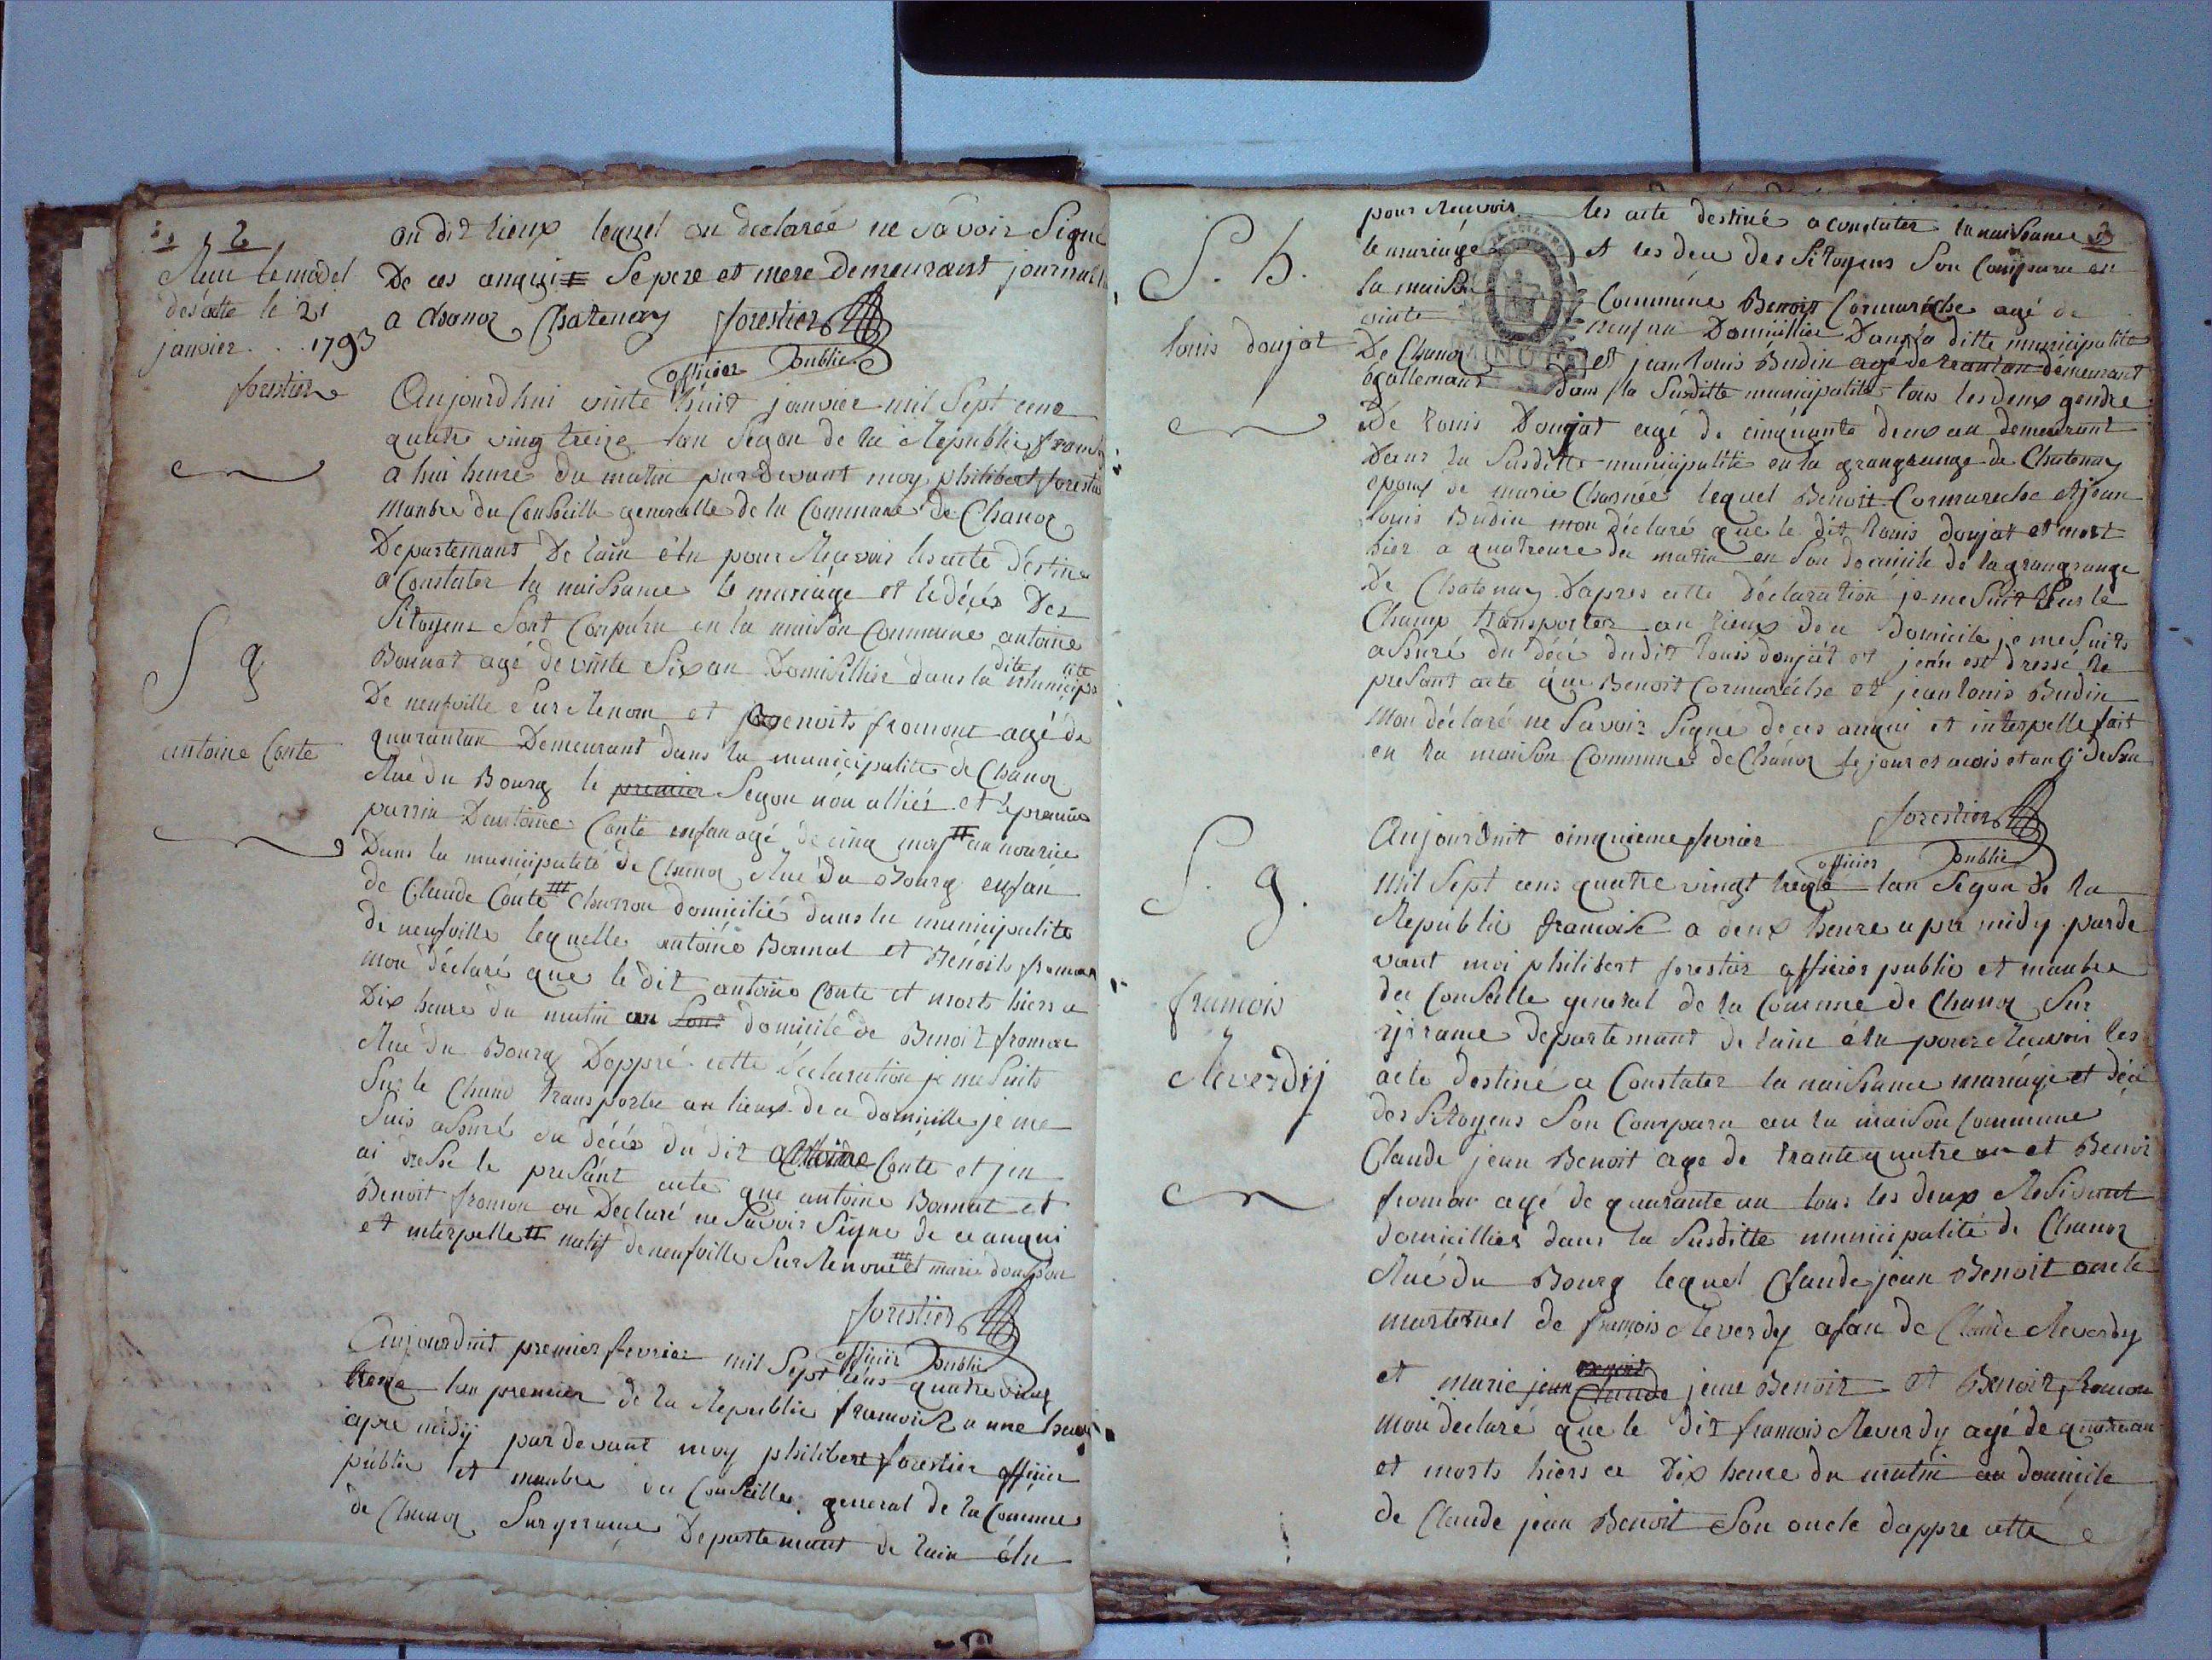 2
Reçu le model
des acte le 21
janvier . . . 1793
forestier
S g
antoine Conte
au dit lieux lequel on declarée ne savoir Signé
De ces anquis Se pere et mere Demeurant journallie
a chanoz Chatenay forestier
officier public
Aujourdhui vinte huit janvier mil Sept cent
quatre ving treize lan Segon de la Republic fransoi
a hui heure du matin pardevant moy philibert forestier
manbre du Conseille generalle de la Commune de Chanoz
Departemant De lain élu pour Recevoir les acte déstiné
a Constater la naissance le mariage et le décés Des
Sitoyens Sont Conparu en la maison Commune antoine
Bonnat agé de vinte Six an Domisillier dans la dite municip
De neufville Sur Renom et Benoits fromont agé de
quarantan Demeurant dans la municipalité de Chanoz
Rue du Bourg le premier Segon non alliés et le premier
parrin Dantoine Conte enfan agé de cinq moy # en nourice
Dans la municipalité de Chanoz Rue du Bourg enfan
de Claude Conte Charron domicilié dans la municipalite
de neufville lequelle antoine Bonnat et Bénoits fromon
mon déclaré que le dit antoine Conte et morts hiers a
Dix heure du matin au Sont domicile de Benoit fromon
Rue du Bourg Dappré cette déclaration je me Suits
Sur le Chanp transporter au lieux de ce domicille je me
Suis assuré du décés du dit antoine Conte et jen
ai dressé le présant acte que antoine Bonnat et
Benoit fromon on Déclaré ne Savoir Signe de ce anquis
et interpelle # natif de neufville Sur Renom et marie
forestier
officier public
Aujourdhuit premier fevrier mil Sept cens quatre ving
treize lan premier de la Republic francoise a une heure
apre midy pardevant moy philibert forestier officier
public et manbre du Conseille general de la Commune
de Chanoz Suryrance Departemant de lain élu
3
S. h.
louis doujat
S. g.
francois
Reverdy
pour Recevoir les acte destiné a constater la naissance
le mariage et les decé des Sitoyens Son Conparu en
la maison Commune Benoit Cormaréche agé de
vinte neuf an Domicillier Dans la ditte municipalite
De Chanoz et jean louis Budin agé de trantan démeurant
égallemant dans la Susditte municipalité tous les deux gendre
De louis Doujat agé de cinquante deux an demeurant
Dans la Susditte municipalité en la grangrange de Chatenay
epoux de marie Charnée lequel Benoit Cormareche et jean
louis Budin mon déclaré que le dit louis doujat et mort
hier a quatreure du matin en Son domicile de la grangrange
De Chatenay Dapres cette déclaration je me Suit Sur le
Champ transporter au lieux de ce domicile je me Suits
assuré du décé dudit louis doujat et jen est dressé le
presant acte que Benoit Cormaréche et jean louis Budin
mon déclaré ne Savoir Signe de ces anquis et interpelle fait
en la maison Commune de Chanoz le jour et mois et an Ci desu
forestier
officier public
Aujourdhuit cinquieme fevrier
mil Sept cens quatre vingt treize lan Segon de la
Republic francoise a deux heure apre midy parde
vant moi philibert forestier officier public et manbre
du Conseille general de la Comune de Chanoz Sur
yrrance departemant de lain élu pour Recevoir les
acte destiné a Constater la naissance mariage et décé
des Sitoyens Son Conparu en la maison Commune
Claude jean Benoit age de trante quatre an et Benoi
fromon agé de quarante an tous les deux Resident
domicillies dans la Susditte municipalité de Chanoz
Rue du Bourg lequel Claude jean Benoit oncle
marternel de francois Reverdy afan de Claude Reverdy
et marie jeane Benoit et Benoit fromon
mon declaré que le dit francois Reverdy agé de quatrean
et morts hiers a Dix heure du matin au domicile
de Claude jean Benoit Son oncle dappre cette